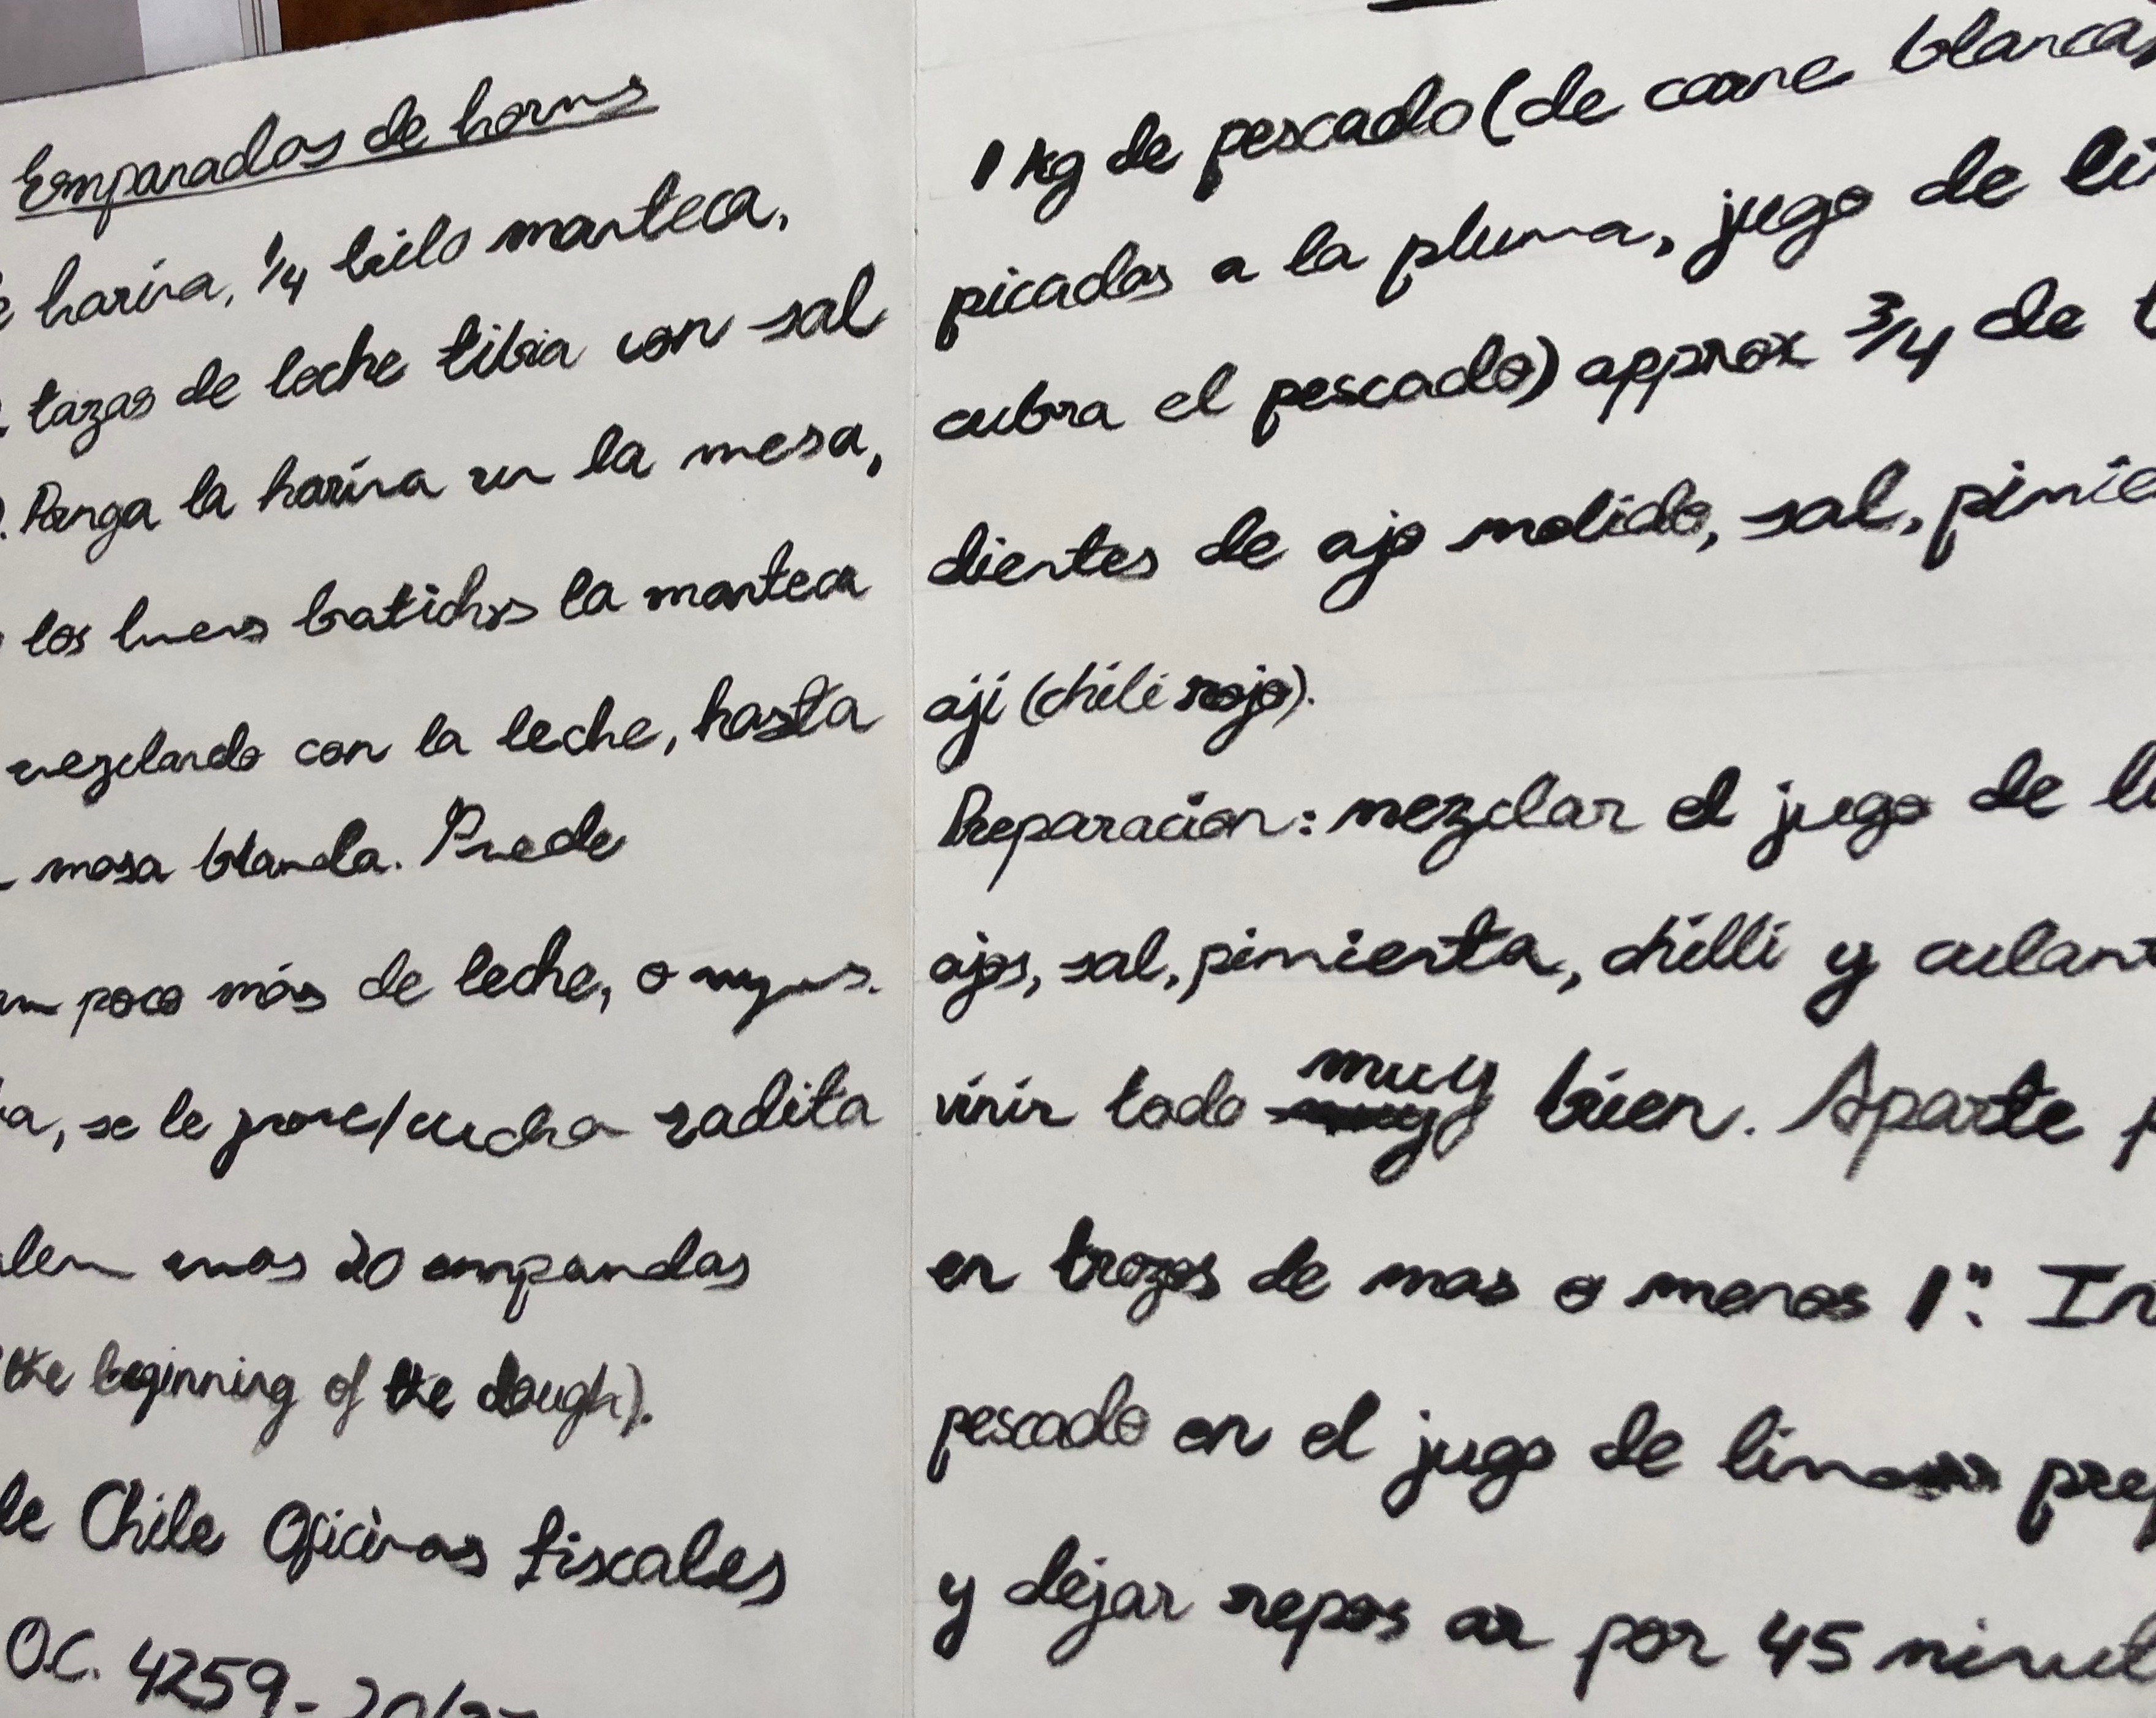 Empanadas de horno
harina, 1/4 kilo manteca,
tazas de leche tibia con sal
Ponga la harina en la mesa,
los huevos batidos la manteca
mezclando con la leche, hasta
masa blanda. Puede
un poco más de leche, o
se le zadita
unas 20 empandas
the beginning of the dough).
de Chile Oficinas fiscales
O.C. 4259-
1 kg de pescado (de carne blanca,
picadas a la pluma, jugo de
cubra el pescado) approx 3/4 de
dientes de ajo molido, sal,
aji (chili rojo).
Preparacion: mezclar el jugo de
ajos, sal, pimienta, chilli y
vinir todo muy bien. Aparte
en trozos de mas o menos 1".
pescado en el jugo de
y dejar repos ar por 45